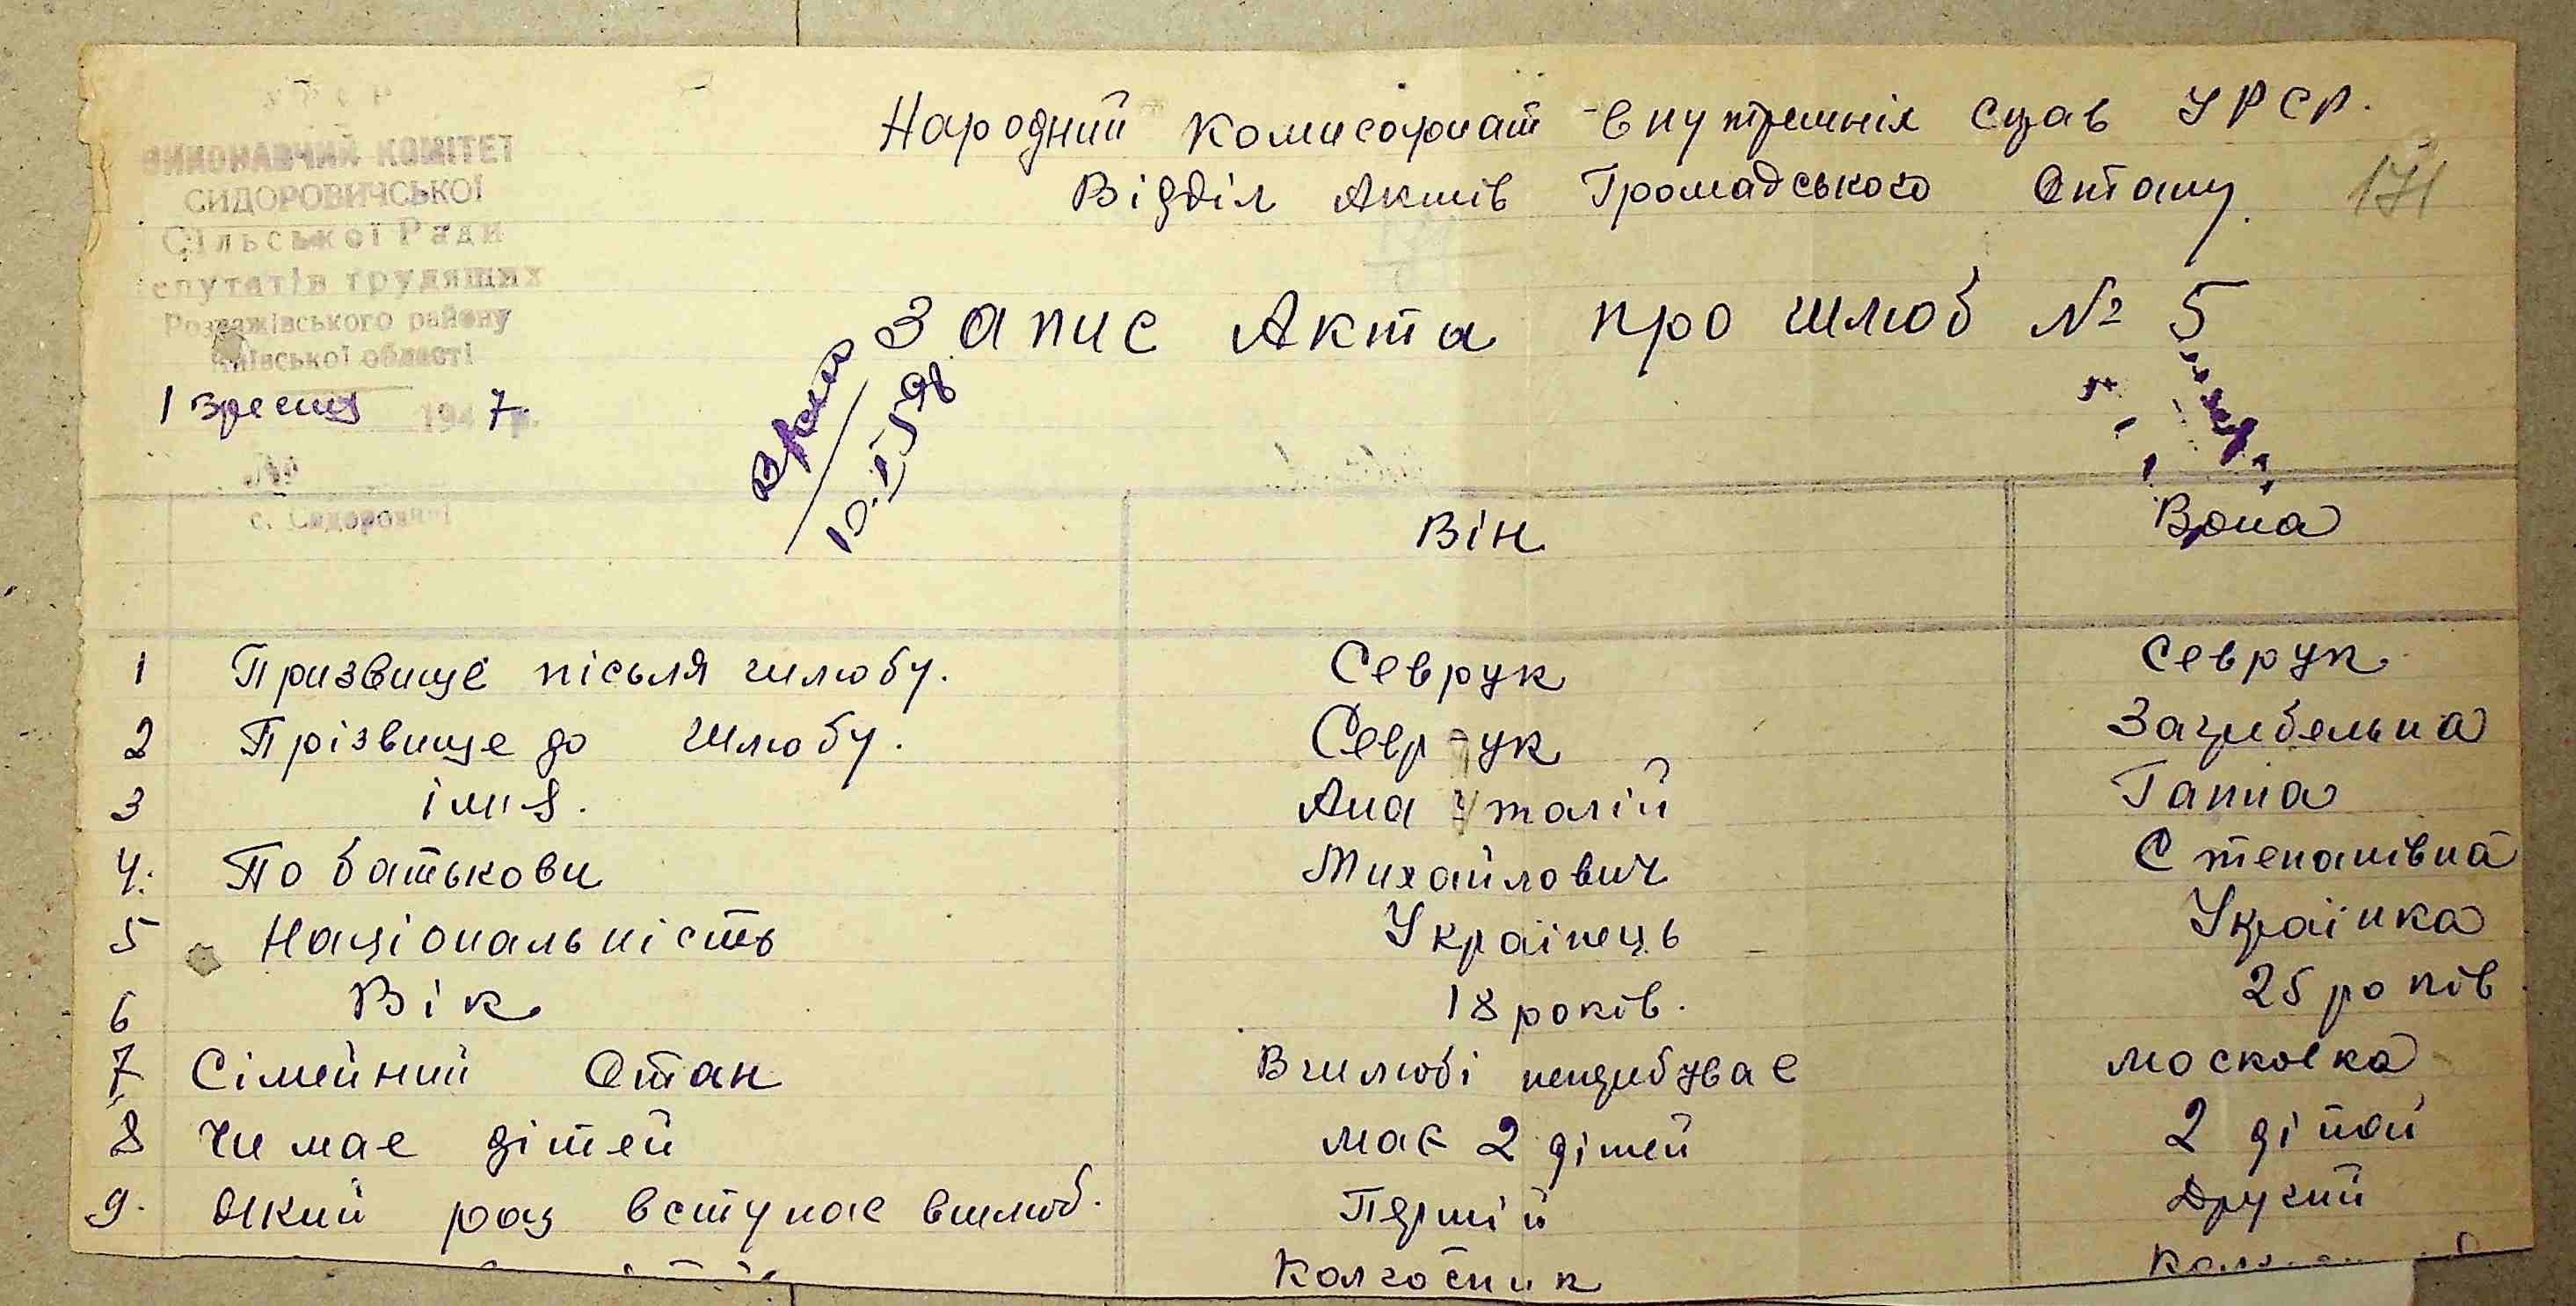 ВИКОНАВЧИЙ КОМІТЕТ
СИДОРОВИЧСЬКОЇ
Сільської Ради
епутатів трудящих
Розважівського району
Київської області
1 Вресня 1947р.
№
с. Сидоровичі
Народний Комисоріат Внутрешніх Справ УРСР.
Відділ Актів Громадського Стану.
171
Запис Акта про шлюб № 5
Він
Вона
1 Призвище пісьля шлюбу. Севрук Севрук
2 Прізвище до шлюбу. Севрук Загребельна
3 імия. Анаталій Ганна
4. По батькови Михайлович Степанівна
5 Національність Українець Українка
6 Вік 18 років. 25 років
7 Сімейний Стан В шлюбі непребував
8 Чи має дітей має 2 дітей 2 дітей
9. Який раз вступає вшлюб. Перший Другий
Колгосник